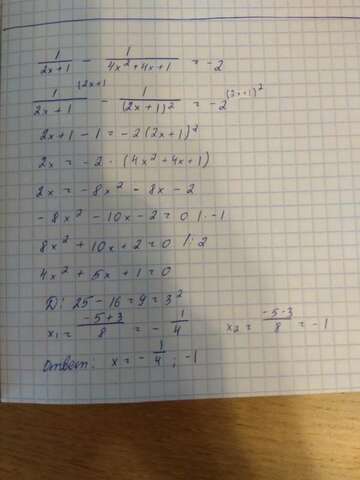 1/(2x+1) - 1/(4x²+4x+1) = -2
1/(2x+1) ^(2x+1) - 1/(2x+1)² = -2 ^(2x+1)²
2x+1 - 1 = -2(2x+1)²
2x = -2 · (4x²+4x+1)
2x = -8x² - 8x - 2
-8x² - 10x - 2 = 0 | · -1
8x² + 10x + 2 = 0 |: 2
4x² + 5x + 1 = 0
D: 25 - 16 = 9 = 3²
x₁ = (-5+3)/8 = - 1/4   x₂ = (-5-3)/8 = -1
Ответ: x = - 1/4 ; -1